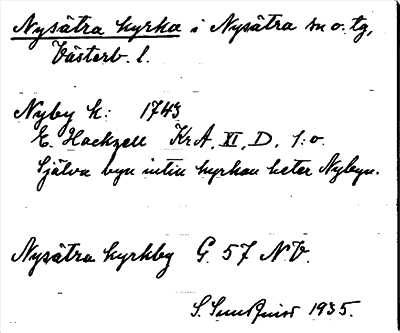 Nysätra kyrka i Nysätra sn o. tg,
Västerb. l.
Nyby k: 1743
E. Hackzell KrA, XI, D, 1:o.
Själva byn intill kyrkan heter Nybyn.
Nysätra kyrkby G. 57 N.V.
S. 1935.